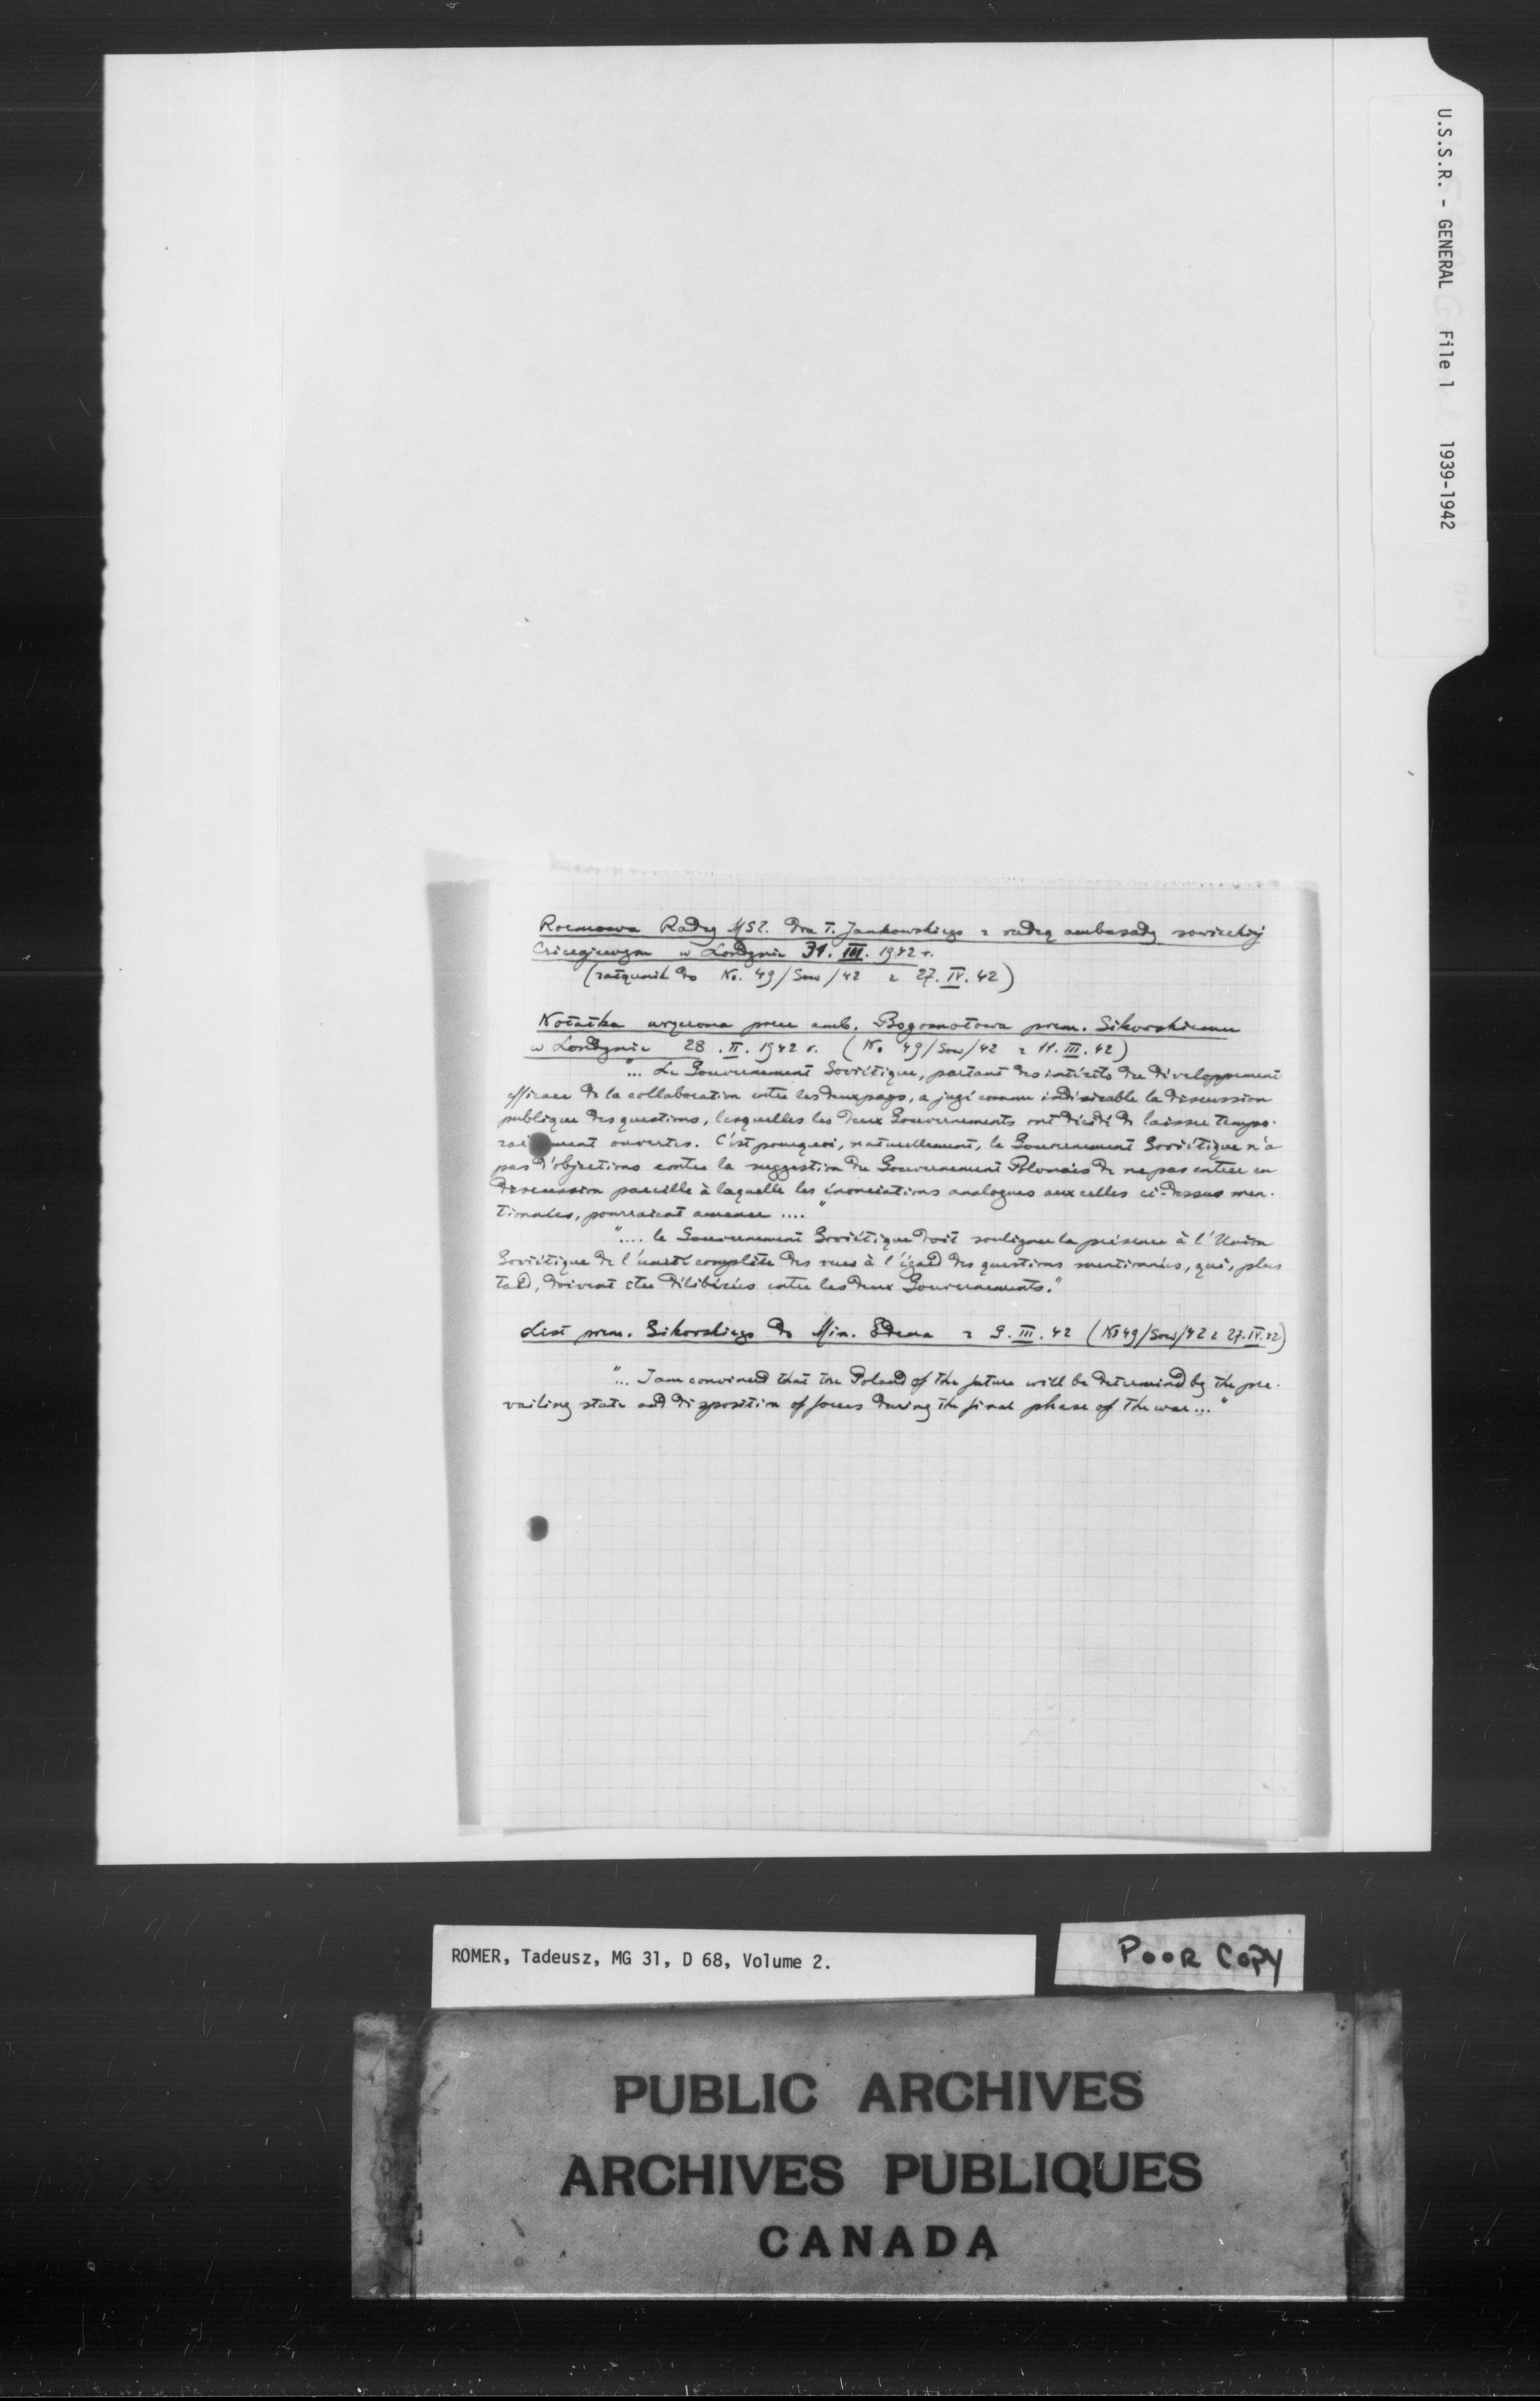 U.S.S.R. - GENERAL File 1 1939-1942
Rozmowa Radcy MSZ. Dra T. Jankowskiego z radcą ambasady sowieckiej
w Londynie 31. III. 1942 r.
(załącznik do No. 49/Sow/42 z 27. IV. 42)
Notatka wręczona przez amb. Bogomołowa prem. Sikorskiemu
w Londynie 28. II. 1942 r. (No 49/Sow/42 z 11. III. 42)
"... Le Gouvernement Soviétique, partant des intérêts du développement
efficace de la collaboration entre les deux pays, a jugé comme indésirable la discussion
publique des questions, lesquelles les deux Gouvernements ont décidé de laisser tempo-
rairement ouvertes. C'est pourquoi, naturellement, le Gouvernement Soviétique n'a
pas d'objections contre la suggestion du Gouvernement Polonais de ne pas entrer en
discussion pareille à laquelle les énonciations analogues aux celles ci-dessus men-
tionnées, pourraient amener ...."
".... le Gouvernement Soviétique doit souligner la présence à l'Union
Soviétique de l'unité complète des vues à l'égard des questions mentionnées, qui, plus
tard, doivent être délibérées entre les deux Gouvernements."
List prem. Sikorskiego do Min. Edena z 9. III. 42 (No 49/Sow/42 z 27. IV. 42)
"... I am convinced that the Poland of the future will be determined by the pre-
vailing state and disposition of forces during the final phase of the war..."
ROMER, Tadeusz, MG 31, D 68, Volume 2.
POOR COPY
PUBLIC ARCHIVES
ARCHIVES PUBLIQUES
CANADA